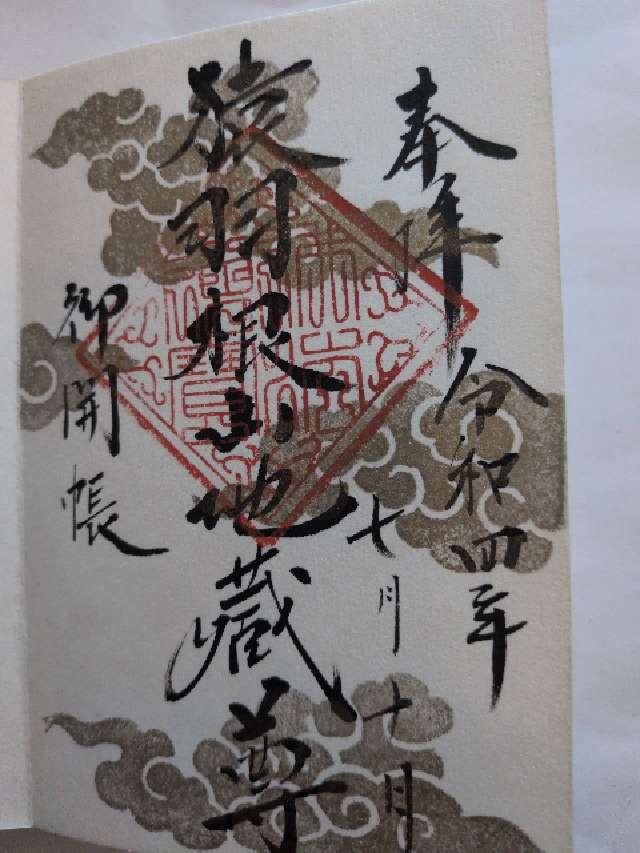 奉拝 令和四年
七月十日
猿羽根山地蔵尊
御開帳